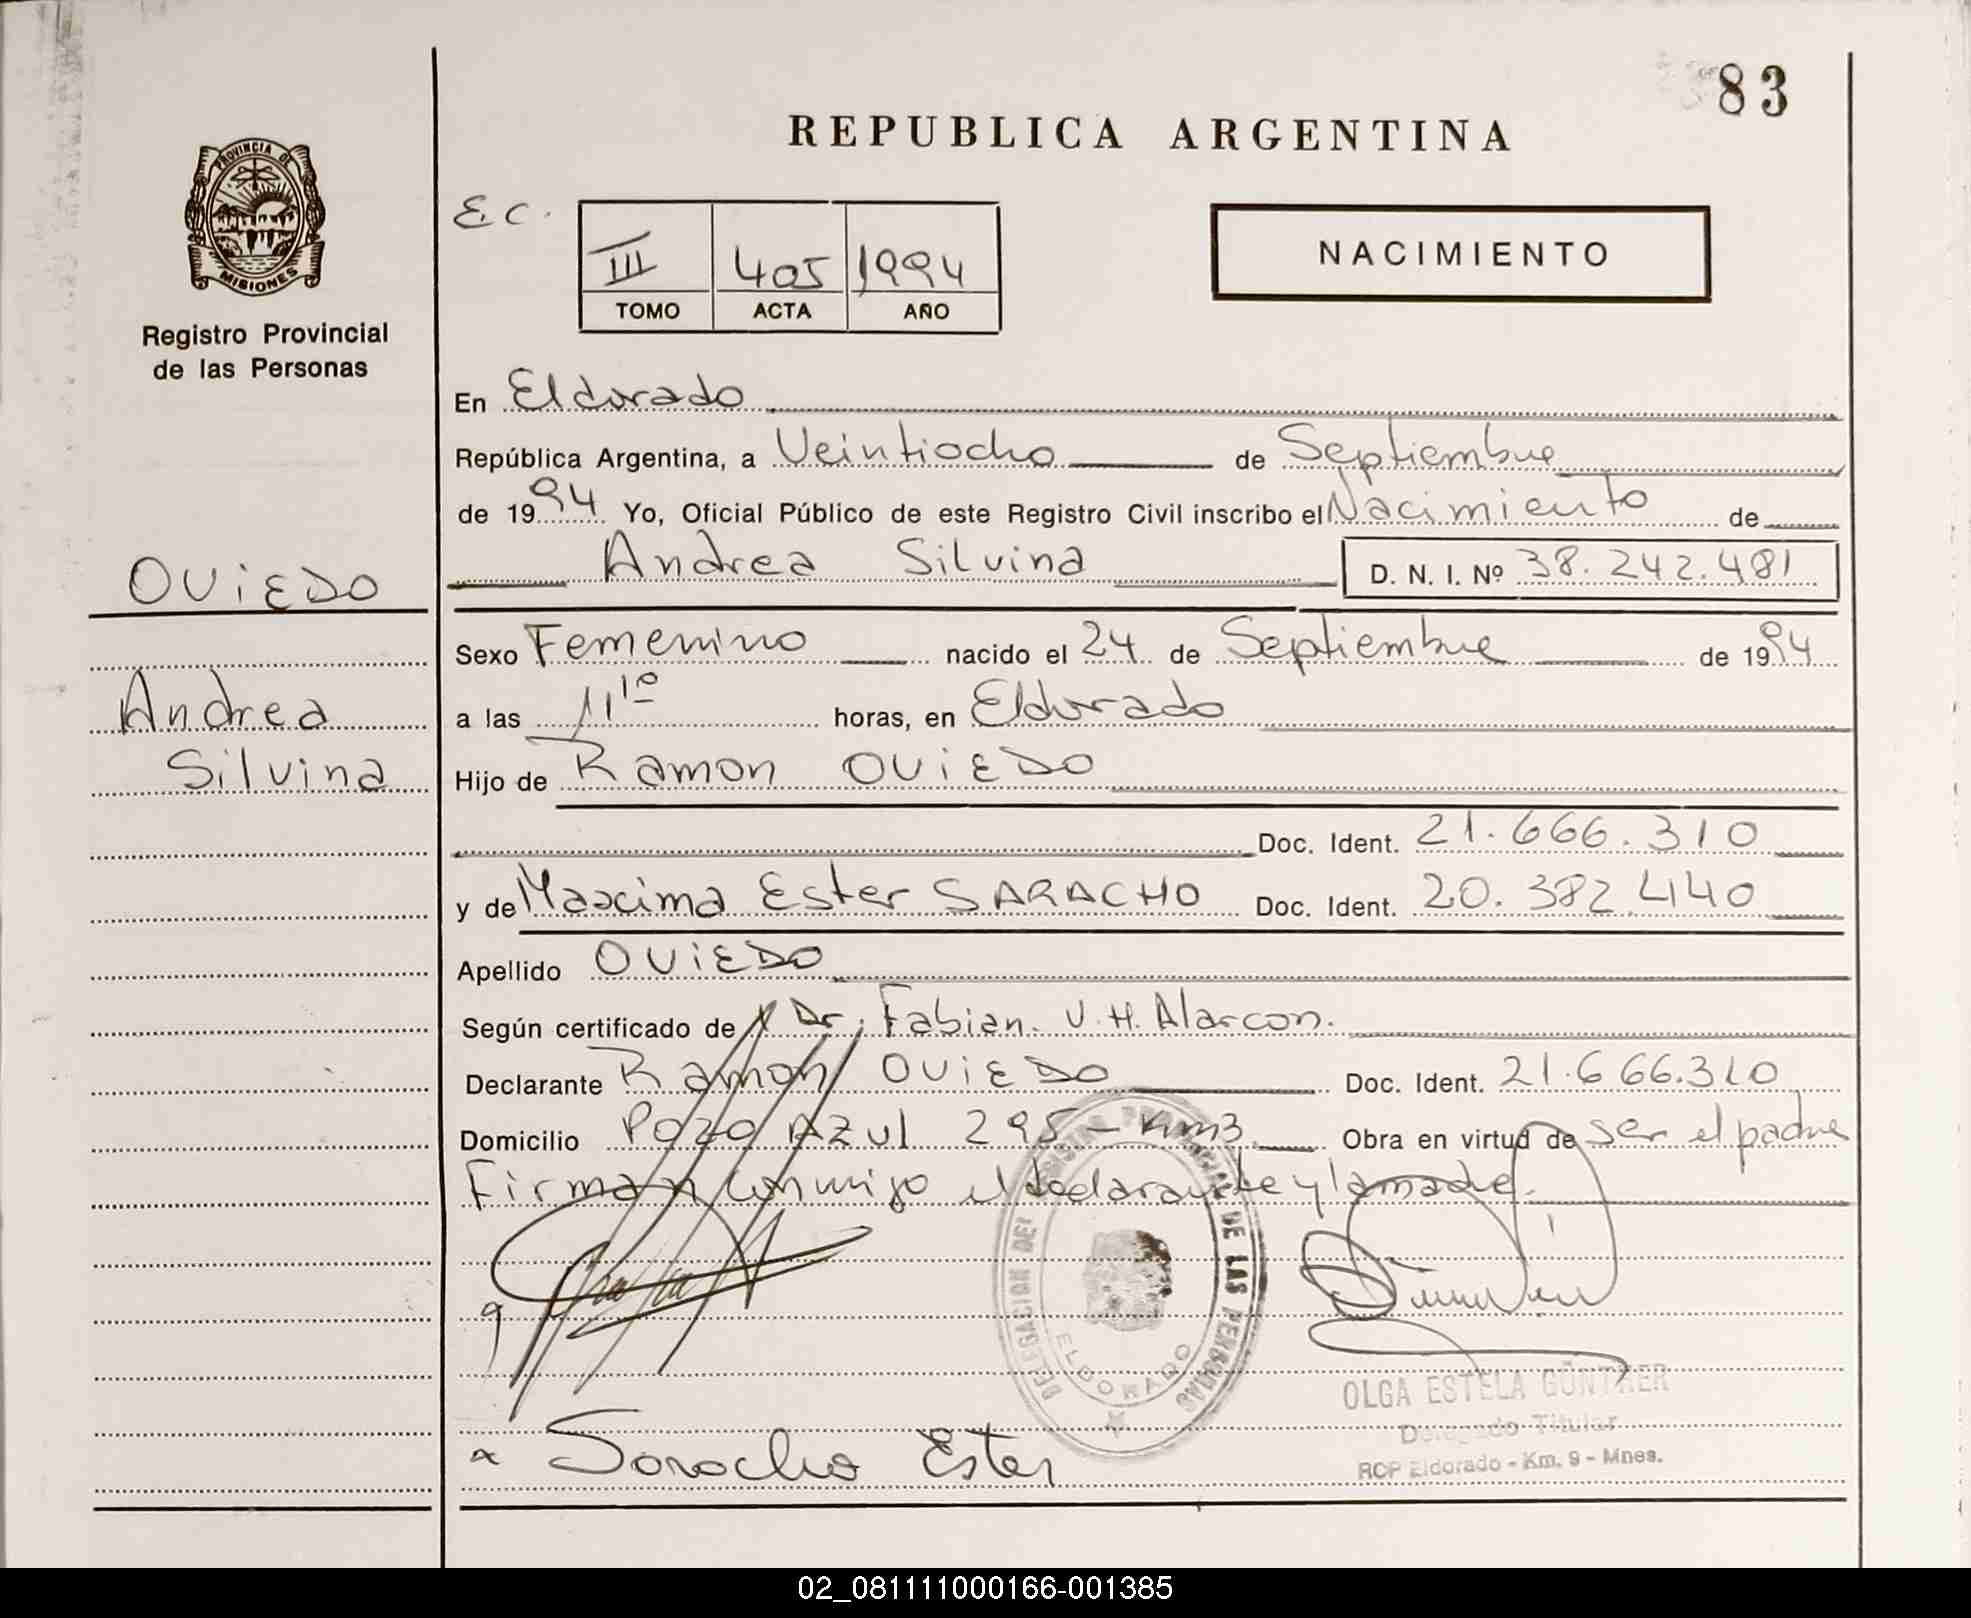 83
REPUBLICA ARGENTINA
PROVINCIA DE
MISIONES
Registro Provincial
de las Personas
E.C.
III 405 1994
TOMO ACTA AÑO
NACIMIENTO
En Eldorado
República Argentina, a Veintiocho de Septiembre
de 1994 Yo, Oficial Público de este Registro Civil inscribo el Nacimiento de
Andrea Silvina D. N. I. Nº 38.242.481
OViEDO
Andrea
Silvina
Sexo Femenino nacido el 24 de Septiembre de 1994
a las 11 10 horas, en Eldorado
Hijo de Ramon OViEDO
Doc. Ident. 21.666.310
y de Maxima Ester SARACHO Doc. Ident. 20.382.440
Apellido OViEDO
Según certificado de Dr. Fabian. V.H. Alarcon.
Declarante Ramon OViEDO Doc. Ident. 21.666.310
Domicilio Pozo Azul 295 - Km3 Obra en virtud de ser el padre
Firman conmigo el declarante y la madre.
DELEGACION DEL REGISTRO PROVINCIAL DE LAS PERSONAS
ELDORADO
OLGA ESTELA GÜNTHER
Delegado Titular
RCP Eldorado - Km. 9 - Mnes.
Saracho Ester
02_081111000166-001385